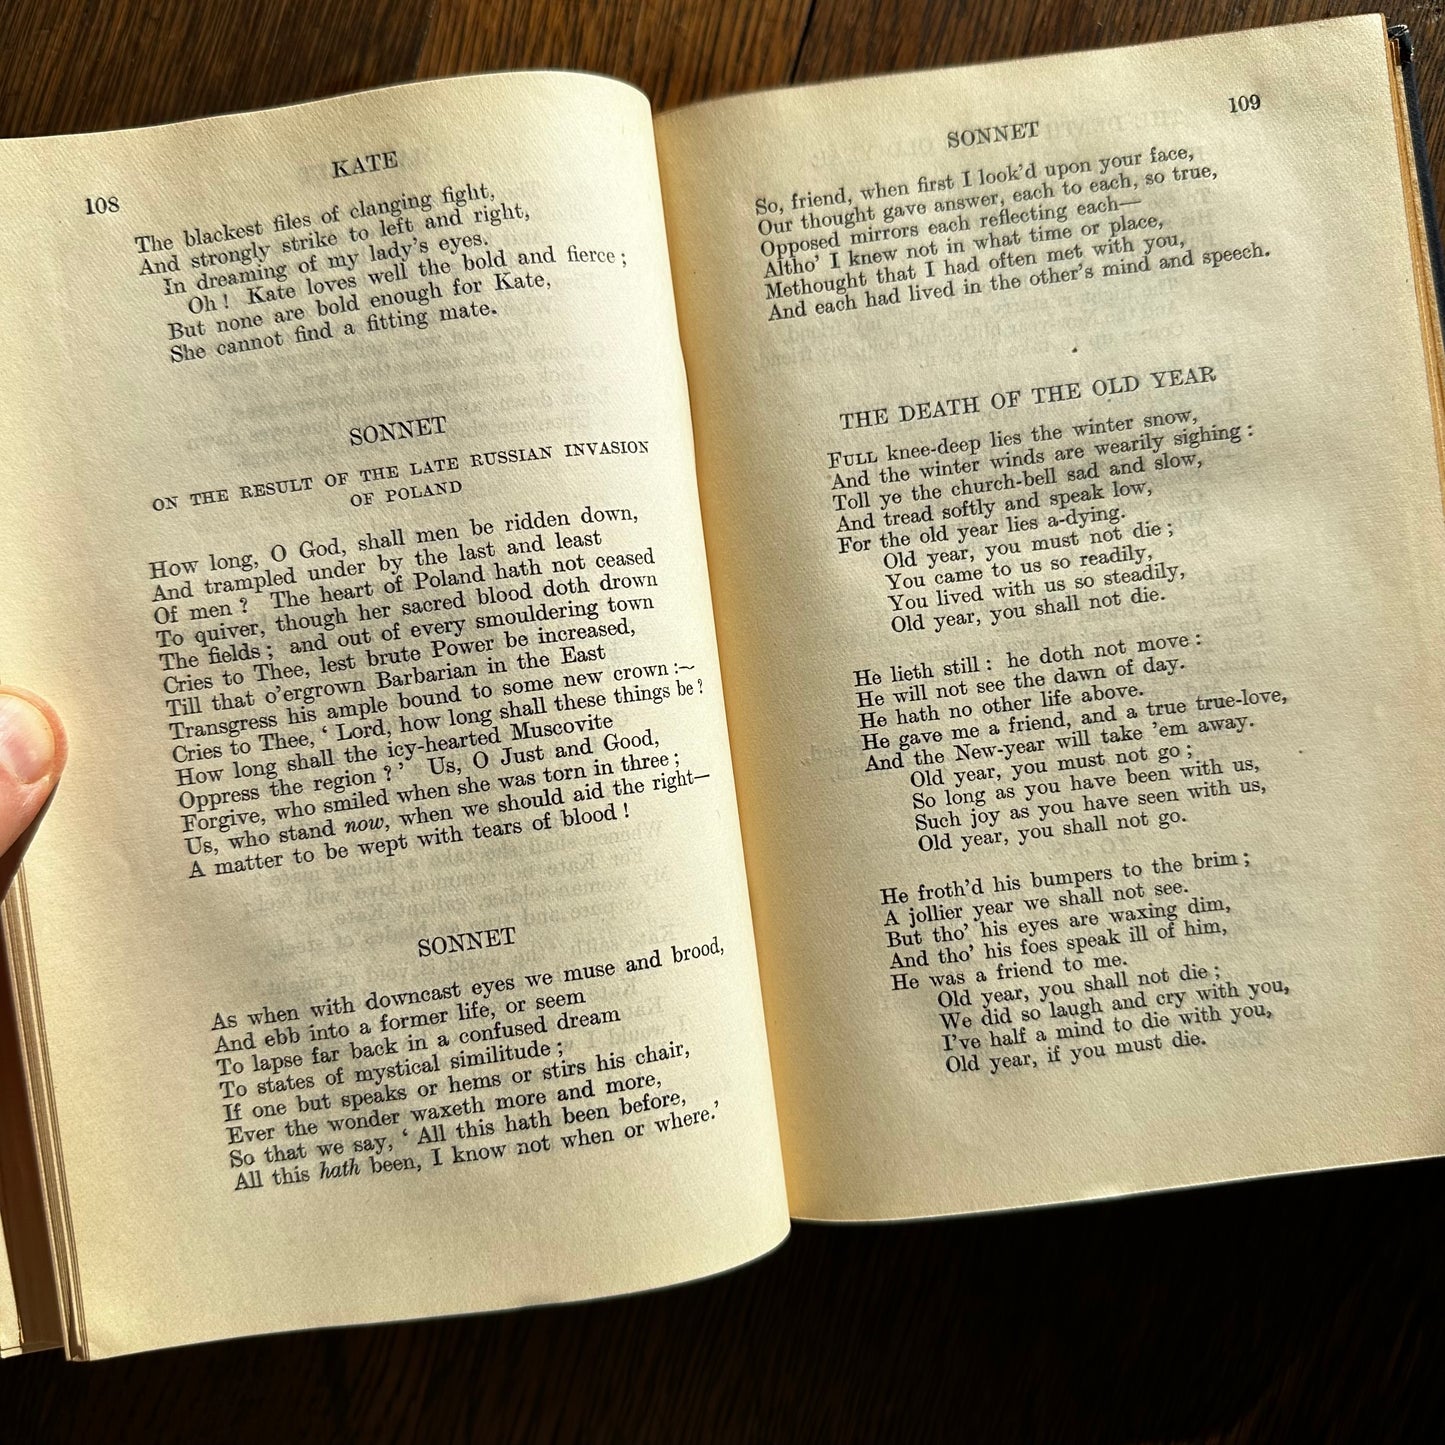 108
KATE
The blackest files of clanging fight,
And strongly strike to left and right,
In dreaming of my lady's eyes.
Oh ! Kate loves well the bold and fierce ;
But none are bold enough for Kate,
She cannot find a fitting mate.
SONNET
ON THE RESULT OF THE LATE RUSSIAN INVASION
OF POLAND
How long, O God, shall men be ridden down,
And trampled under by the last and least
Of men ? The heart of Poland hath not ceased
To quiver, though her sacred blood doth drown
The fields ; and out of every smouldering town
Cries to Thee, lest brute Power be increased,
Till that o'ergrown Barbarian in the East
Transgress his ample bound to some new crown :—
Cries to Thee, ‘ Lord, how long shall these things be ?
How long shall the icy-hearted Muscovite
Oppress the region ? ’ Us, O Just and Good,
Forgive, who smiled when she was torn in three ;
Us, who stand now, when we should aid the right—
A matter to be wept with tears of blood !
SONNET
As when with downcast eyes we muse and brood,
And ebb into a former life, or seem
To lapse far back in a confused dream
To states of mystical similitude ;
If one but speaks or hems or stirs his chair,
Ever the wonder waxeth more and more,
So that we say, ‘ All this hath been before,
All this hath been, I know not when or where.’
SONNET
109
So, friend, when first I look'd upon your face,
Our thought gave answer, each to each, so true,
Opposed mirrors each reflecting each—
Altho' I knew not in what time or place,
Methought that I had often met with you,
And each had lived in the other's mind and speech.
THE DEATH OF THE OLD YEAR
FULL knee-deep lies the winter snow,
And the winter winds are wearily sighing :
Toll ye the church-bell sad and slow,
And tread softly and speak low,
For the old year lies a-dying.
Old year, you must not die ;
You came to us so readily,
You lived with us so steadily,
Old year, you shall not die.
He lieth still : he doth not move :
He will not see the dawn of day.
He hath no other life above.
He gave me a friend, and a true true-love,
And the New-year will take 'em away.
Old year, you must not go ;
So long as you have been with us,
Such joy as you have seen with us,
Old year, you shall not go.
He froth'd his bumpers to the brim ;
A jollier year we shall not see.
But tho' his eyes are waxing dim,
And tho' his foes speak ill of him,
He was a friend to me.
Old year, you shall not die ;
We did so laugh and cry with you,
I've half a mind to die with you,
Old year, if you must die.